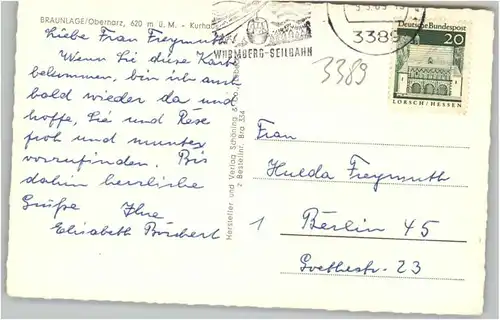 BRAUNLAGE/Oberharz, 620 m ü. M. - Kurha
Liebe Frau Freymuth
Wenn Sie diese Karte
bekommen, bin ich auch
bald wieder da und
hoffe, Sie und Rose
froh und munter
vorzufinden. Bis
dahin herzliche
Grüße Ihre
Elisabeth
Hersteller und Verlag Schöning & Co.
z Bestellnr. Bra 334
WURMBERG-SEILBAHN
3389
3389
Deutsche Bundespost
20
LORSCH/HESSEN
Frau
Hulda Freymuth
1 Berlin 45
Goethestr. 23